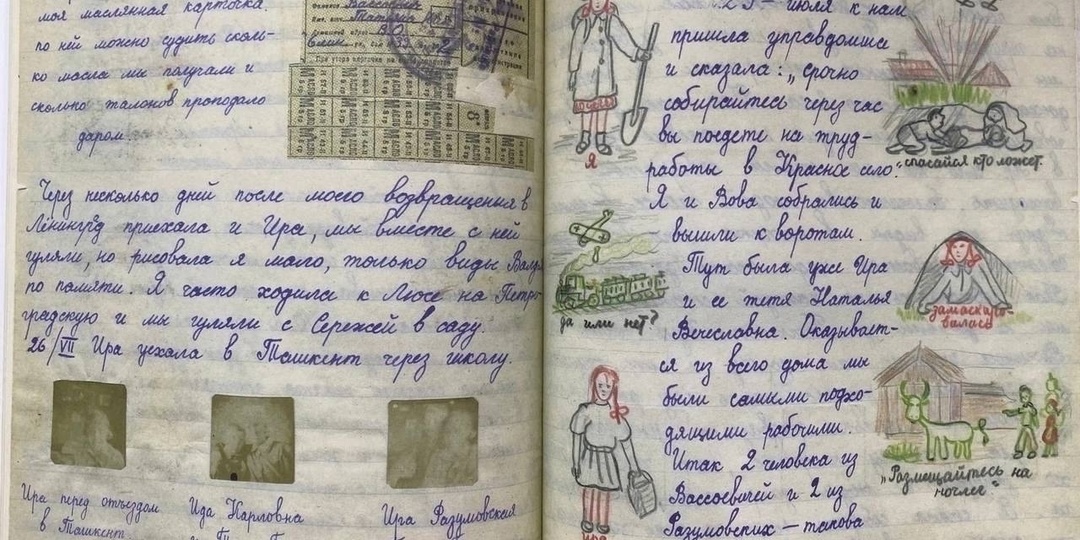 моя маслянная карточка.
по ней можно судить сколь-
ко масла мы получали и
сколько талонов пропадало
даром.
Через несколько дней после моего возвращения в
Ленинград приехала и Ира, мы вместе с ней
гуляли, но рисовала я мало, только виды
по памяти. Я часто ходила к Люсе на Петро-
градскую и мы гуляли с Сережей в саду.
26/VII Ира уехала в Ташкент через школу.
Ира перед отъездом
в Ташкент
Ида Карловна
Ира Разумовская
июля к нам
пришла управдомша
и сказала: „срочно
собирайтесь через час
вы поедете на труд-
работы в Красное село."
Я и Вова собрались и
вышли к воротам.
Тут была уже Ира
и ее тетя Наталья
Вечеславна. Оказывает-
ся из всего дома мы
были самыми подхо-
дящими рабочими.
Итак 2 человека из
Вассоевичей и 2 из
Разумовских — такова
я
да или нет?
Ира
спасайся кто может.
замаскиро-
валась
„Размещайтесь на
ночлег"